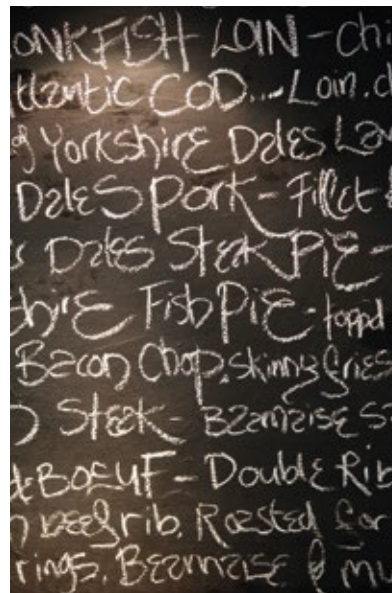 ONKFISH LOIN - chi
tlantic COD... - Loin. c
of YORKSHIRE DALES La
DALES PORK - Fillet
DALES STEAK PIE -
hire FISH PIE - topped
Bacon Chop, skinny fries
STEAK - BEARNAISE S
de BOEUF - DOUBLE Rib
beef rib. Roasted for
rings. BEARNAISE & mu